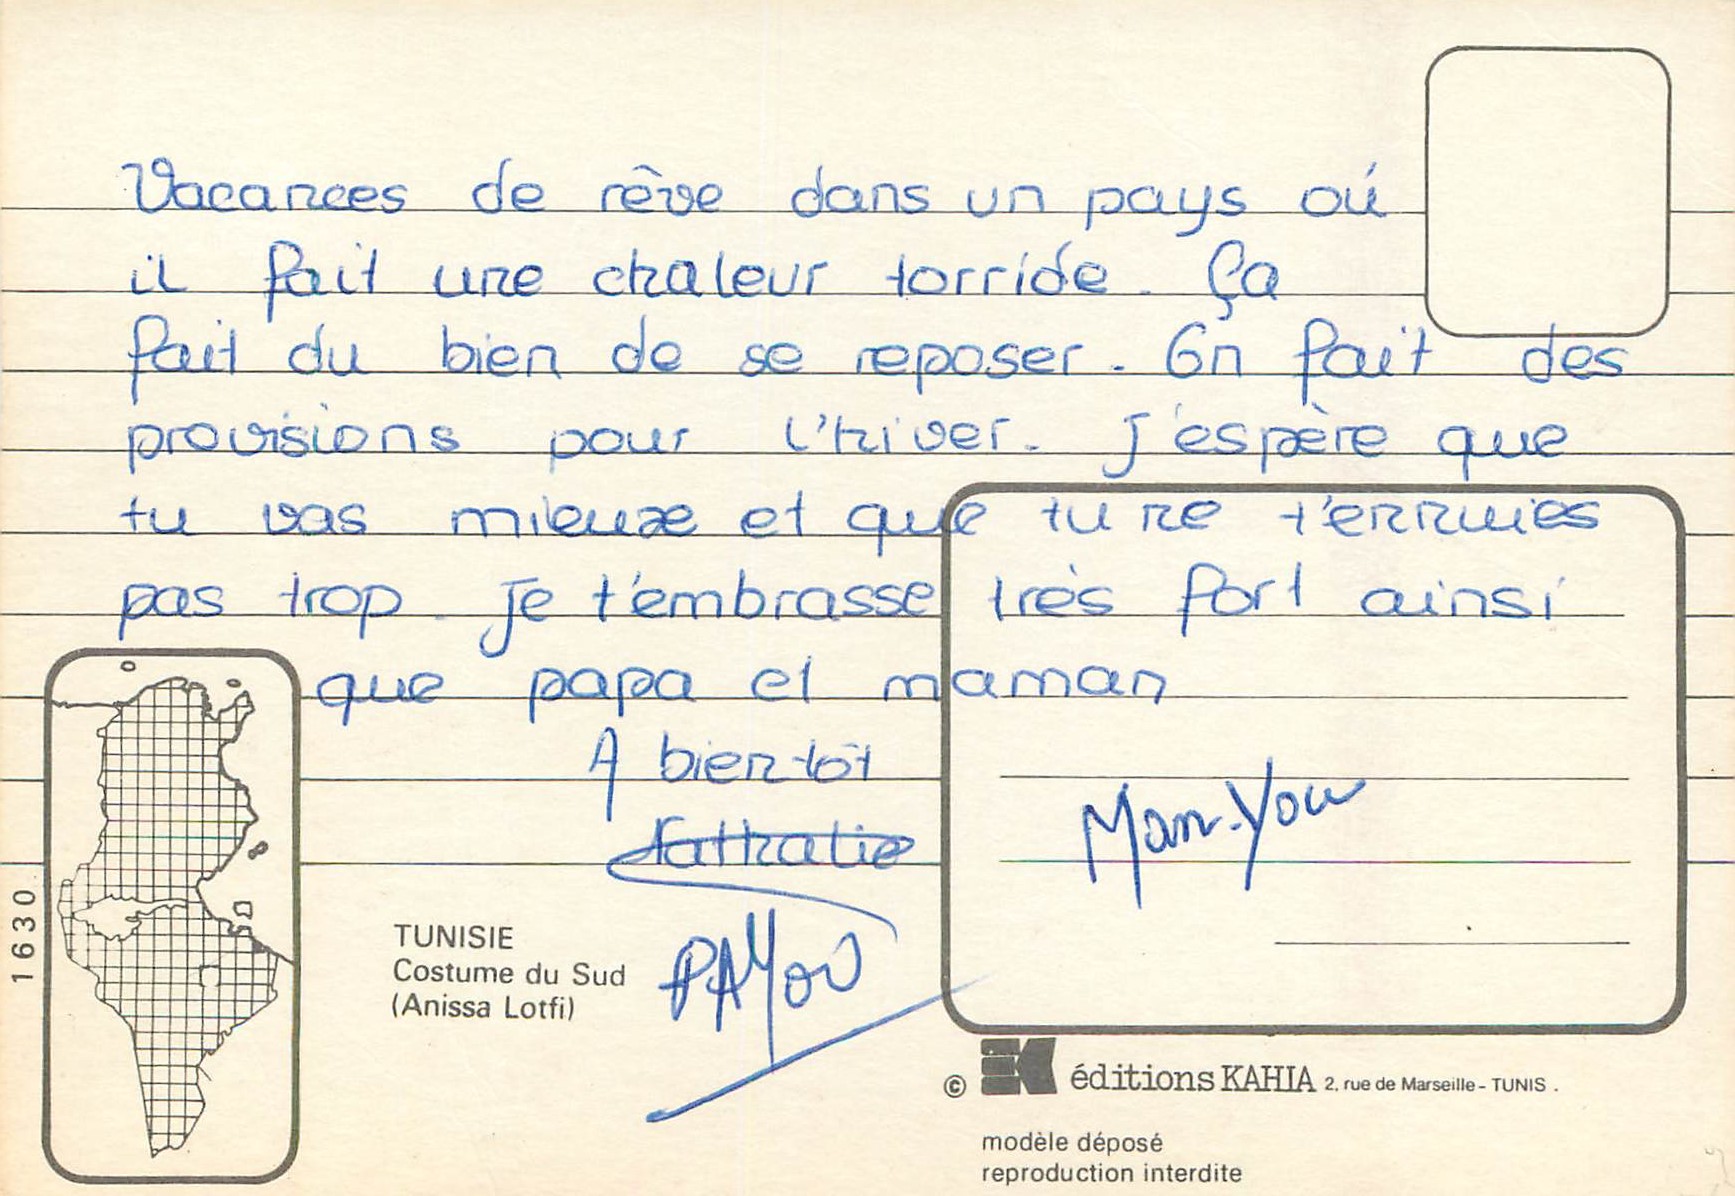 Vacances de rêve dans un pays oú
il fait une chaleur torride. Ça
fait du bien de se reposer. On fait des
provisions pour l'hiver. J'espère que
tu vas mieux et que tu ne t'ennuies
pas trop. Je t'embrasse très fort ainsi
que papa et maman
A bientôt
Nathalie
PAYOU
Man-You
1630
TUNISIE
Costume du Sud
(Anissa Lotfi)
© éditions KAHIA 2, rue de Marseille - TUNIS .
modèle déposé
reproduction interdite